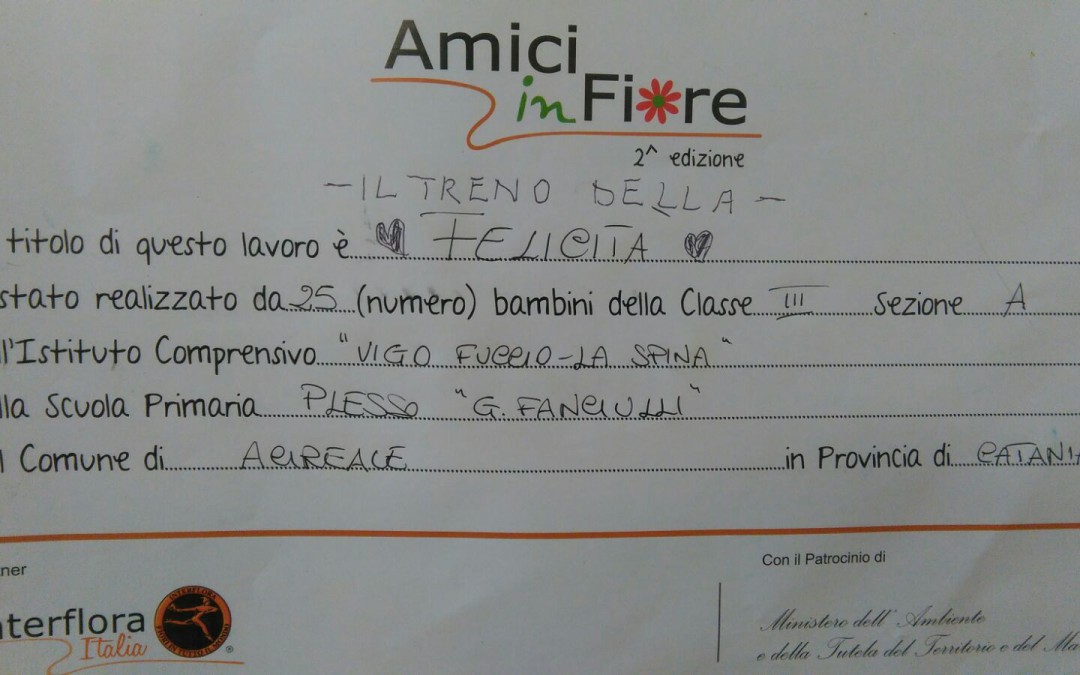 Amici
in Fiore
2^ edizione
- IL TRENO DELLA -
titolo di questo lavoro è FELICITA
stato realizzato da 25 (numero) bambini della Classe III Sezione A
l'Istituto Comprensivo "VIGO FUCCIO-LA SPINA"
lla Scuola Primaria PLESSO "G. FANCIULLI"
l Comune di ACIREALE in Provincia di CATANIA
ner
Con il Patrocinio di
nterflora
Italia
INTERFLORA
FIORI IN TUTTO IL MONDO
®
Ministero dell' Ambiente
e della Tutela del Territorio e del Ma